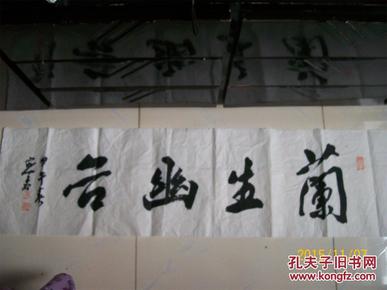 蘭生幽谷
甲午
2015/11/07
孔夫子旧书网
www.kongfz.com